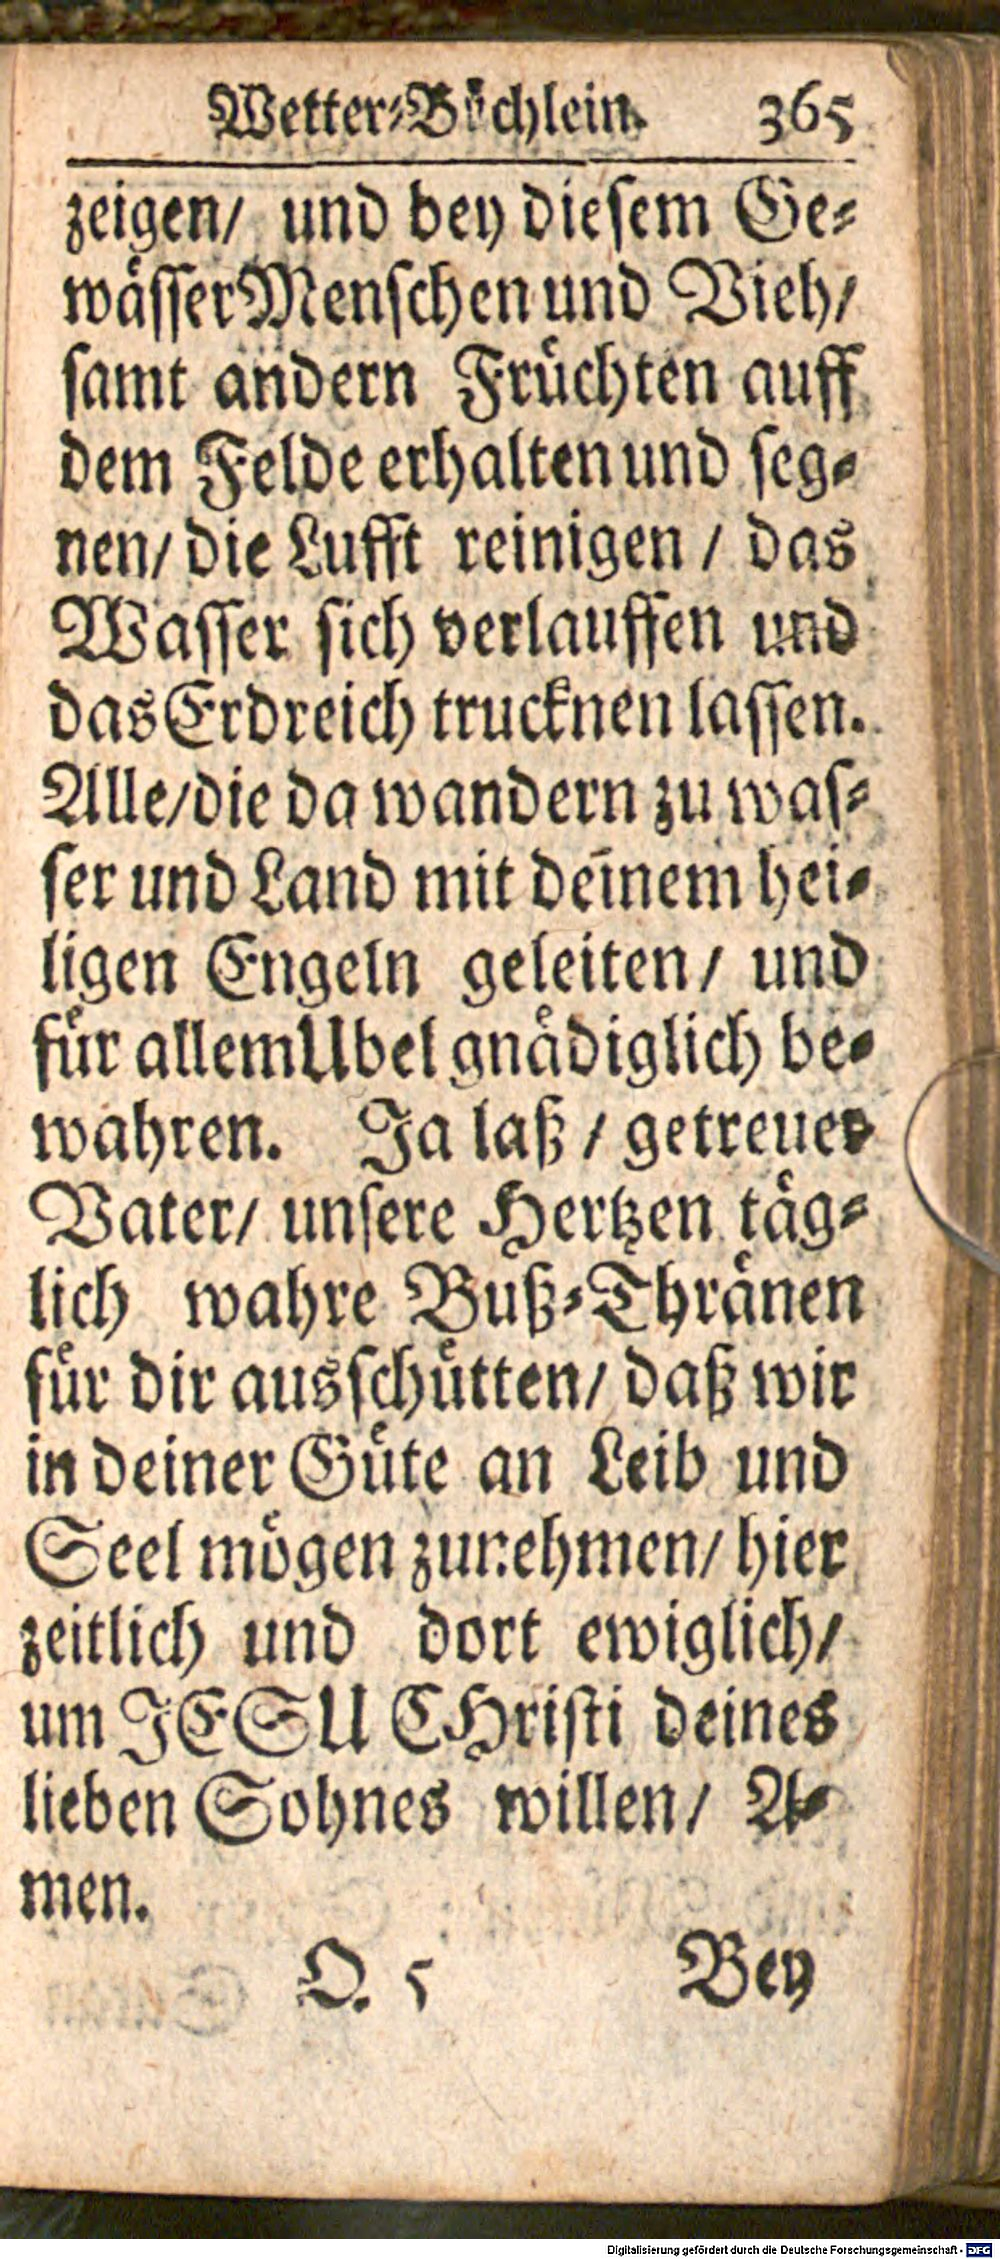 Wetter-Büchlein. 365
zeigen/ und bey diesem Ge-
wässer Menschen und Vieh/
samt andern Früchten auff
dem Felde erhalten und seg-
nen/ die Lufft reinigen / das
Wasser sich verlauffen und
das Erdreich trucknen lassen.
Alle/die da wandern zu was-
ser und Land mit deinem hei-
ligen Engeln geleiten/ und
für allem Ubel gnädiglich be-
wahren. Ja laß / getreuer
Vater/ unsere Hertzen täg-
lich wahre Buß-Thränen
für dir ausschütten/ daß wir
in deiner Güte an Leib und
Seel mögen zunehmen/ hier
zeitlich und dort ewiglich/
um JESU CHristi deines
lieben Sohnes willen/ A-
men.
Q. 5 Bey
Digitalisierung gefördert durch die Deutsche Forschungsgemeinschaft - DFG